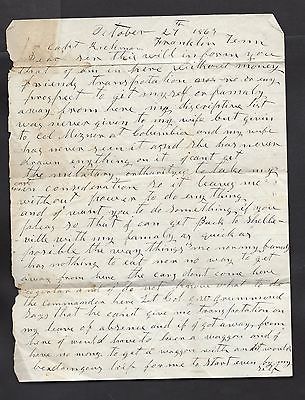 October 27th 1863
Capt Dickinson Franklin Tenn
Dear Sir this will inform you
that I am in here without money
friends transportation or any
prospect to get myself or famaly
away from here my discription list
was never given to my wife but given
to Col Mizner at Columbia and my wife
has never seen it and she has never
drawn anything on it I cant get
the millatary orthority to take my
case in consideration so it leaves me
without power to do anything
and I want you to do something if you
please so that I can get Back to Shelbe
ville with my famaly as quick as
possible the way things nor my famaly
has nothing to eat nor no way to
get away from here the cars dont come here
and I do not know what to do
the Commandon here Lt Col
says that he canot give me Transportation on
my leave of absence and if I got away from
here I would have to have a waggon and I
have no mony to get a waggon with and it would
be dangerous for me to start even by my
self